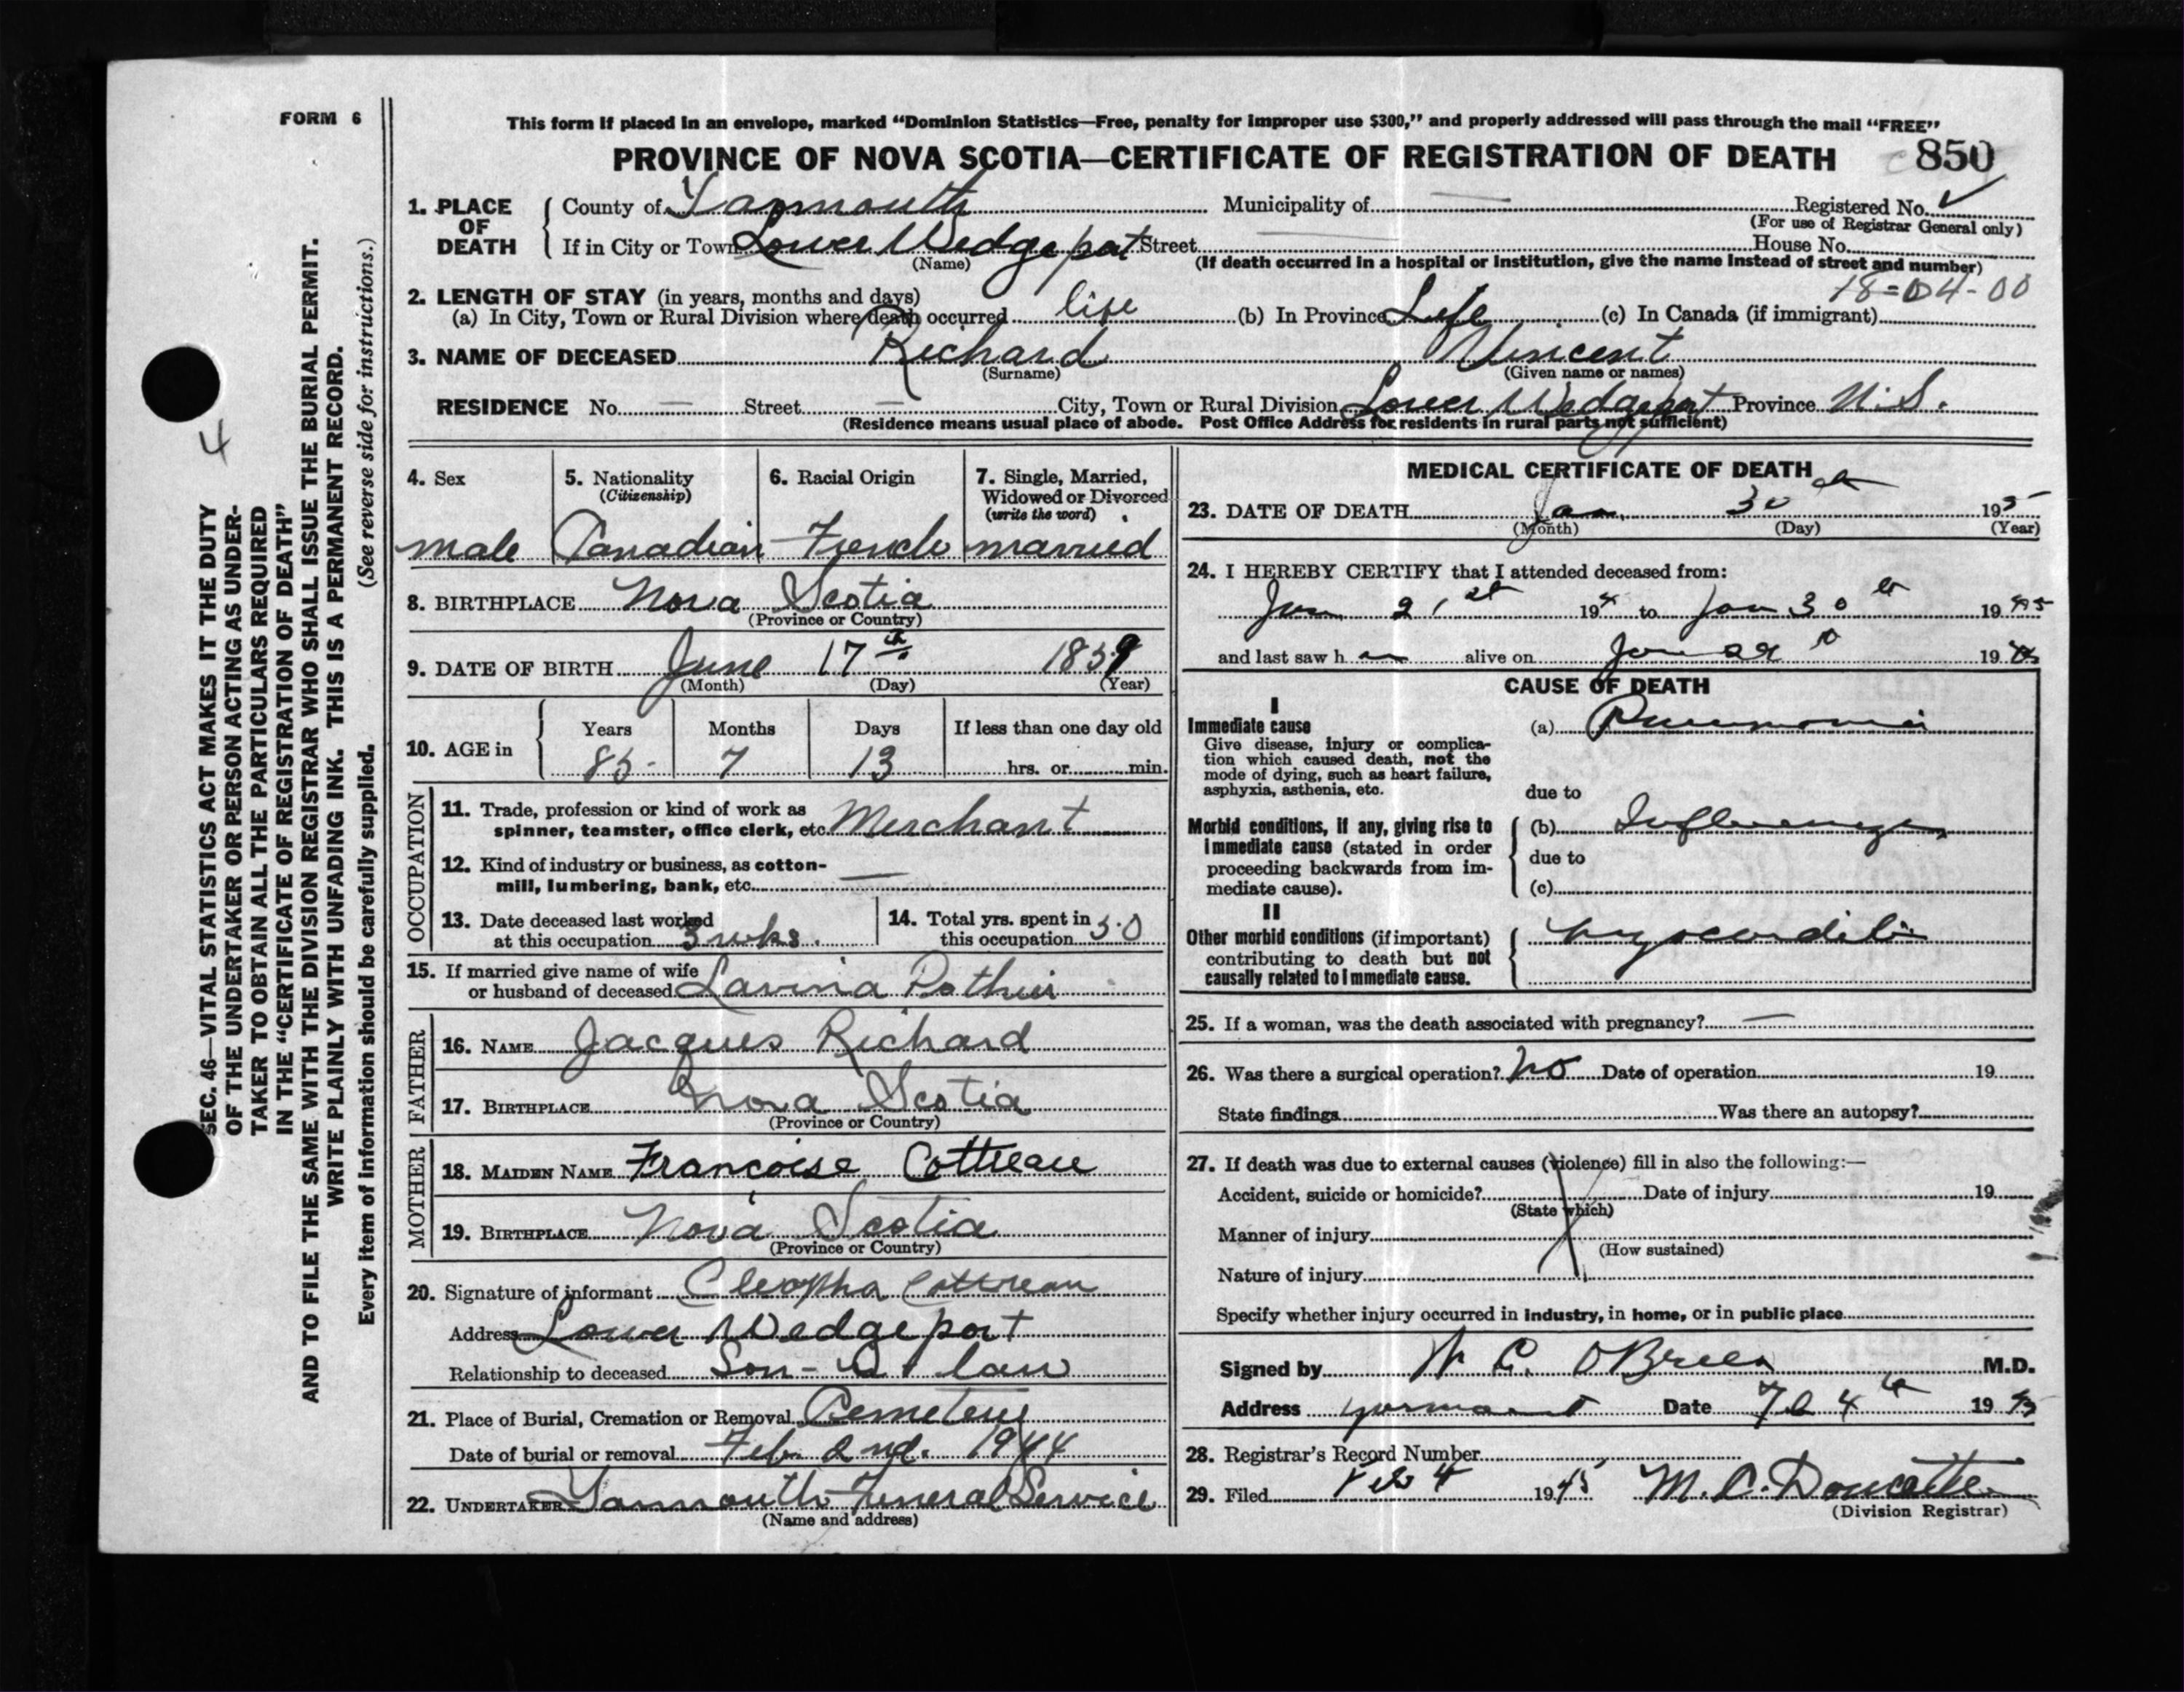 FORM 6
This form if placed in an envelope, marked "Dominion Statistics—Free, penalty for improper use $300," and properly addressed will pass through the mail "FREE"
PROVINCE OF NOVA SCOTIA—CERTIFICATE OF REGISTRATION OF DEATH 850
1. PLACE OF DEATH
County of Yarmouth Municipality of — Registered No. ✓
(For use of Registrar General only)
If in City or Town Lower Wedgeport Street — House No.
(Name) (If death occurred in a hospital or institution, give the name instead of street and number)
18-04-00
2. LENGTH OF STAY (in years, months and days)
(a) In City, Town or Rural Division where death occurred life (b) In Province Life (c) In Canada (if immigrant)
3. NAME OF DECEASED Richard Vincent
(Surname) (Given name or names)
RESIDENCE No. — Street — City, Town or Rural Division Lower Wedgeport Province N.S.
(Residence means usual place of abode. Post Office Address for residents in rural parts not sufficient)
4. Sex
male
5. Nationality
(Citizenship)
Canadian
6. Racial Origin
French
7. Single, Married,
Widowed or Divorced
(write the word)
married
8. BIRTHPLACE Nova Scotia
(Province or Country)
9. DATE OF BIRTH June 17th 1859
(Month) (Day) (Year)
10. AGE in
Years Months Days If less than one day old
85 7 13 hrs. or min.
OCCUPATION
11. Trade, profession or kind of work as
spinner, teamster, office clerk, etc. Merchant
12. Kind of industry or business, as cotton-
mill, lumbering, bank, etc. —
13. Date deceased last worked
at this occupation 3 wks.
14. Total yrs. spent in
this occupation 50
15. If married give name of wife
or husband of deceased Lavina
FATHER
16. NAME Jacques Richard
17. BIRTHPLACE Nova Scotia
(Province or Country)
MOTHER
18. MAIDEN NAME Françoise Cottreau
19. BIRTHPLACE Nova Scotia
(Province or Country)
20. Signature of informant Cleopha Cottreau
Address Lower Wedgeport
Relationship to deceased Son-in-law
21. Place of Burial, Cremation or Removal Cemetery
Date of burial or removal Feb. 2nd. 1944
22. UNDERTAKER Yarmouth Funeral Service
(Name and address)
MEDICAL CERTIFICATE OF DEATH
23. DATE OF DEATH Jan. 30th 195
(Month) (Day) (Year)
24. I HEREBY CERTIFY that I attended deceased from:
Jan 21st 194 to Jan 30th 1945
and last saw h alive on Jan 29th 19
CAUSE OF DEATH
I
Immediate cause
Give disease, injury or complica-
tion which caused death, not the
mode of dying, such as heart failure,
asphyxia, asthenia, etc.
(a) Pneumonia
due to
Morbid conditions, if any, giving rise to
immediate cause (stated in order
proceeding backwards from im-
mediate cause).
(b) Influenza
due to
(c)
II
Other morbid conditions (if important)
contributing to death but not
causally related to immediate cause.
Myocarditis
25. If a woman, was the death associated with pregnancy? —
26. Was there a surgical operation? No Date of operation 19
State findings Was there an autopsy?
27. If death was due to external causes (violence) fill in also the following:—
Accident, suicide or homicide? Date of injury 19
(State which)
Manner of injury
(How sustained)
Nature of injury
Specify whether injury occurred in industry, in home, or in public place
Signed by W C. O'Brien M.D.
Address Yarmouth Date Feb 4th 1945
28. Registrar's Record Number
29. Filed Feb 4 1945 M. C. Doucette
(Division Registrar)
4
SEC. 46—VITAL STATISTICS ACT MAKES IT THE DUTY
OF THE UNDERTAKER OR PERSON ACTING AS UNDER-
TAKER TO OBTAIN ALL THE PARTICULARS REQUIRED
IN THE "CERTIFICATE OF REGISTRATION OF DEATH"
AND TO FILE THE SAME WITH THE DIVISION REGISTRAR WHO SHALL ISSUE THE BURIAL PERMIT.
WRITE PLAINLY WITH UNFADING INK. THIS IS A PERMANENT RECORD.
Every item of information should be carefully supplied. (See reverse side for instructions.)